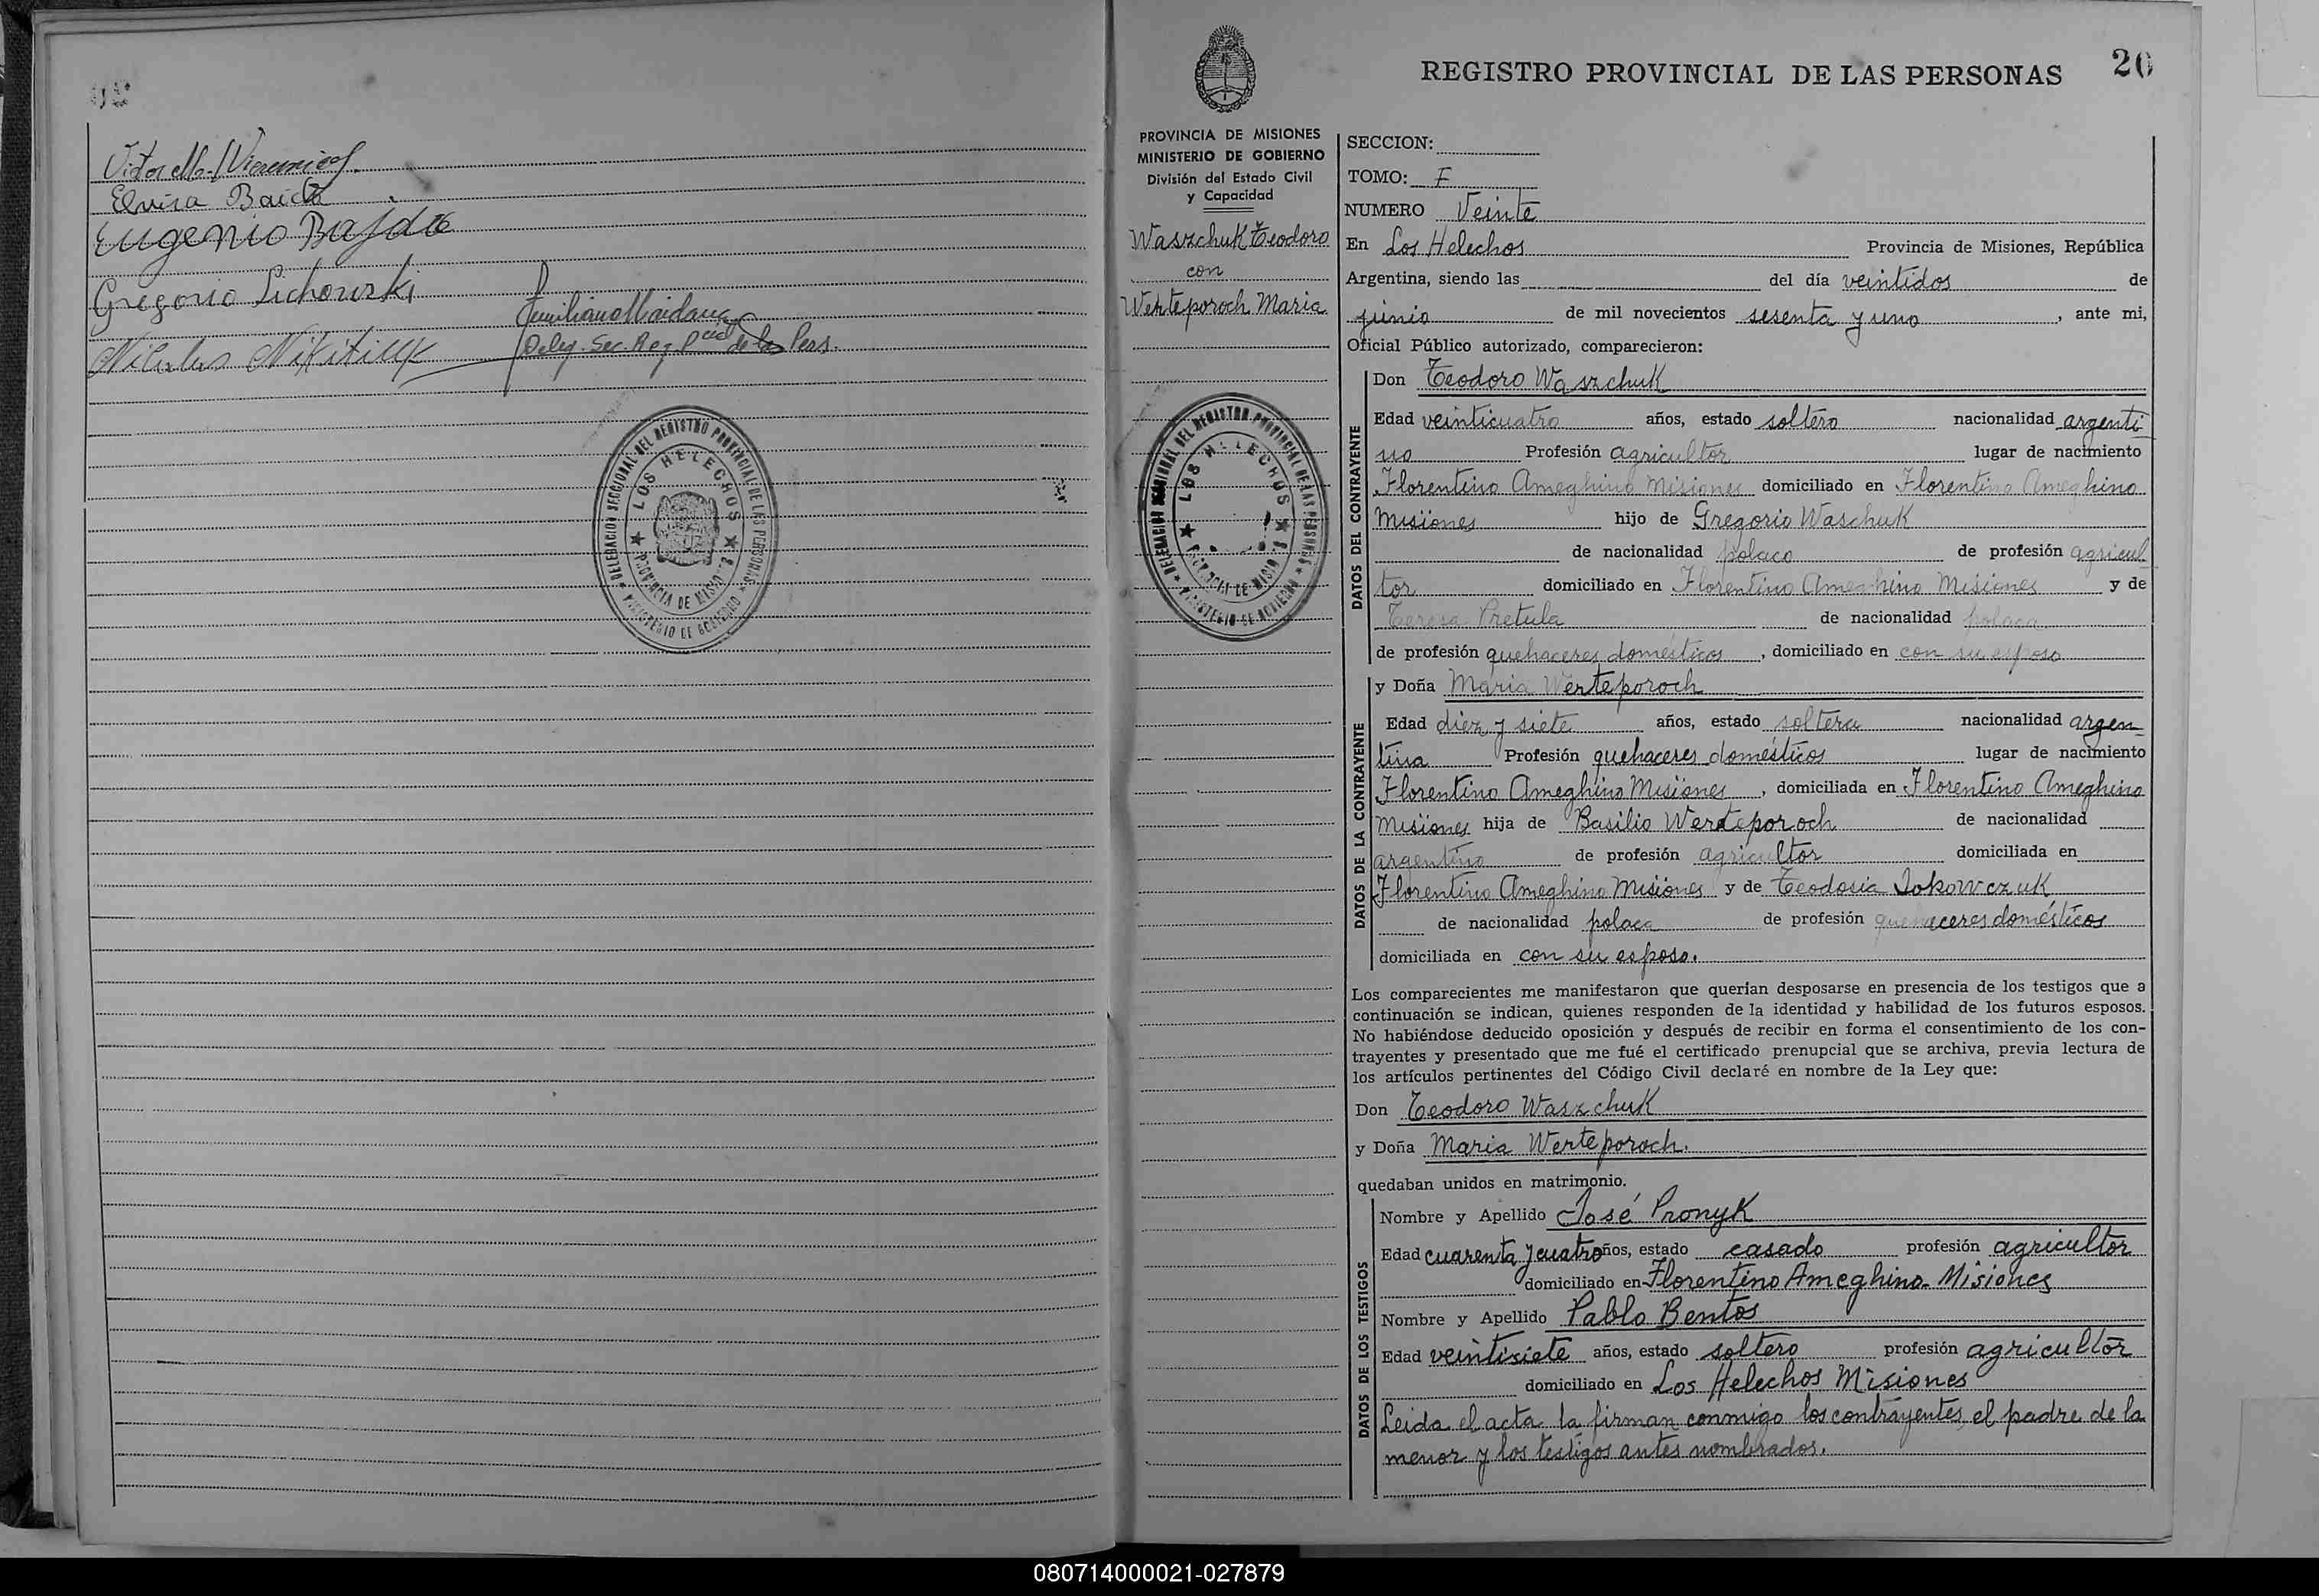 Elvira Baida
Eugenio Bajda
Gregorio Lichowski
Nikitiuk
Emiliano Maidana
Deleg. Sec. Reg. Pcial de las Pers.
DELEGACION SECCIONAL DEL REGISTRO PROVINCIAL DE LAS PERSONAS
LOS HELECHOS
PROVINCIA DE MISIONES
MINISTERIO DE GOBIERNO
REGISTRO PROVINCIAL DE LAS PERSONAS
20
PROVINCIA DE MISIONES
MINISTERIO DE GOBIERNO
División del Estado Civil
y Capacidad
Waszchuk Teodoro
con
Werteporoch Maria
DELEGACION SECCIONAL DEL REGISTRO PROVINCIAL DE LAS PERSONAS
LOS HELECHOS
PROVINCIA DE MISIONES
MINISTERIO DE GOBIERNO
SECCION:
TOMO: F
NUMERO Veinte
En Los Helechos Provincia de Misiones, República
Argentina, siendo las del día veintidos de
junio de mil novecientos sesenta y uno, ante mi,
Oficial Público autorizado, comparecieron:
DATOS DEL CONTRAYENTE
Don Teodoro Waszchuk
Edad veinticuatro años, estado soltero nacionalidad argenti
no Profesión agricultor lugar de nacimiento
Florentino Ameghino Misiones domiciliado en Florentino Ameghino
Misiones hijo de Gregorio Waschuk
de nacionalidad polaco de profesión agricul
tor domiciliado en Florentino Ameghino Misiones y de
Teresa Pretula de nacionalidad polaca
de profesión quehaceres domésticos, domiciliado en con su esposo
DATOS DE LA CONTRAYENTE
y Doña Maria Werteporoch
Edad diez y siete años, estado soltera nacionalidad argen
tina Profesión quehaceres domésticos lugar de nacimiento
Florentino Ameghino Misiones, domiciliada en Florentino Ameghino
Misiones hija de Basilio Werteporoch de nacionalidad
argentino de profesión agricultor domiciliada en
Florentino Ameghino Misiones y de Teodosia Sokowczuk
de nacionalidad polaca de profesión quehaceres domésticos
domiciliada en con su esposo.
Los comparecientes me manifestaron que querían desposarse en presencia de los testigos que a
continuación se indican, quienes responden de la identidad y habilidad de los futuros esposos.
No habiéndose deducido oposición y después de recibir en forma el consentimiento de los con-
trayentes y presentado que me fué el certificado prenupcial que se archiva, previa lectura de
los artículos pertinentes del Código Civil declaré en nombre de la Ley que:
Don Teodoro Waszchuk
y Doña Maria Werteporoch.
quedaban unidos en matrimonio.
DATOS DE LOS TESTIGOS
Nombre y Apellido José Pronyk
Edad cuarenta y cuatro años, estado casado profesión agricultor
domiciliado en Florentino Ameghino Misiones
Nombre y Apellido Pablo Bentos
Edad veintisiete años, estado soltero profesión agricultor
domiciliado en Los Helechos Misiones
Leida el acta la firman conmigo los contrayentes, el padre de la
menor y los testigos antes nombrados.
080714000021-027879